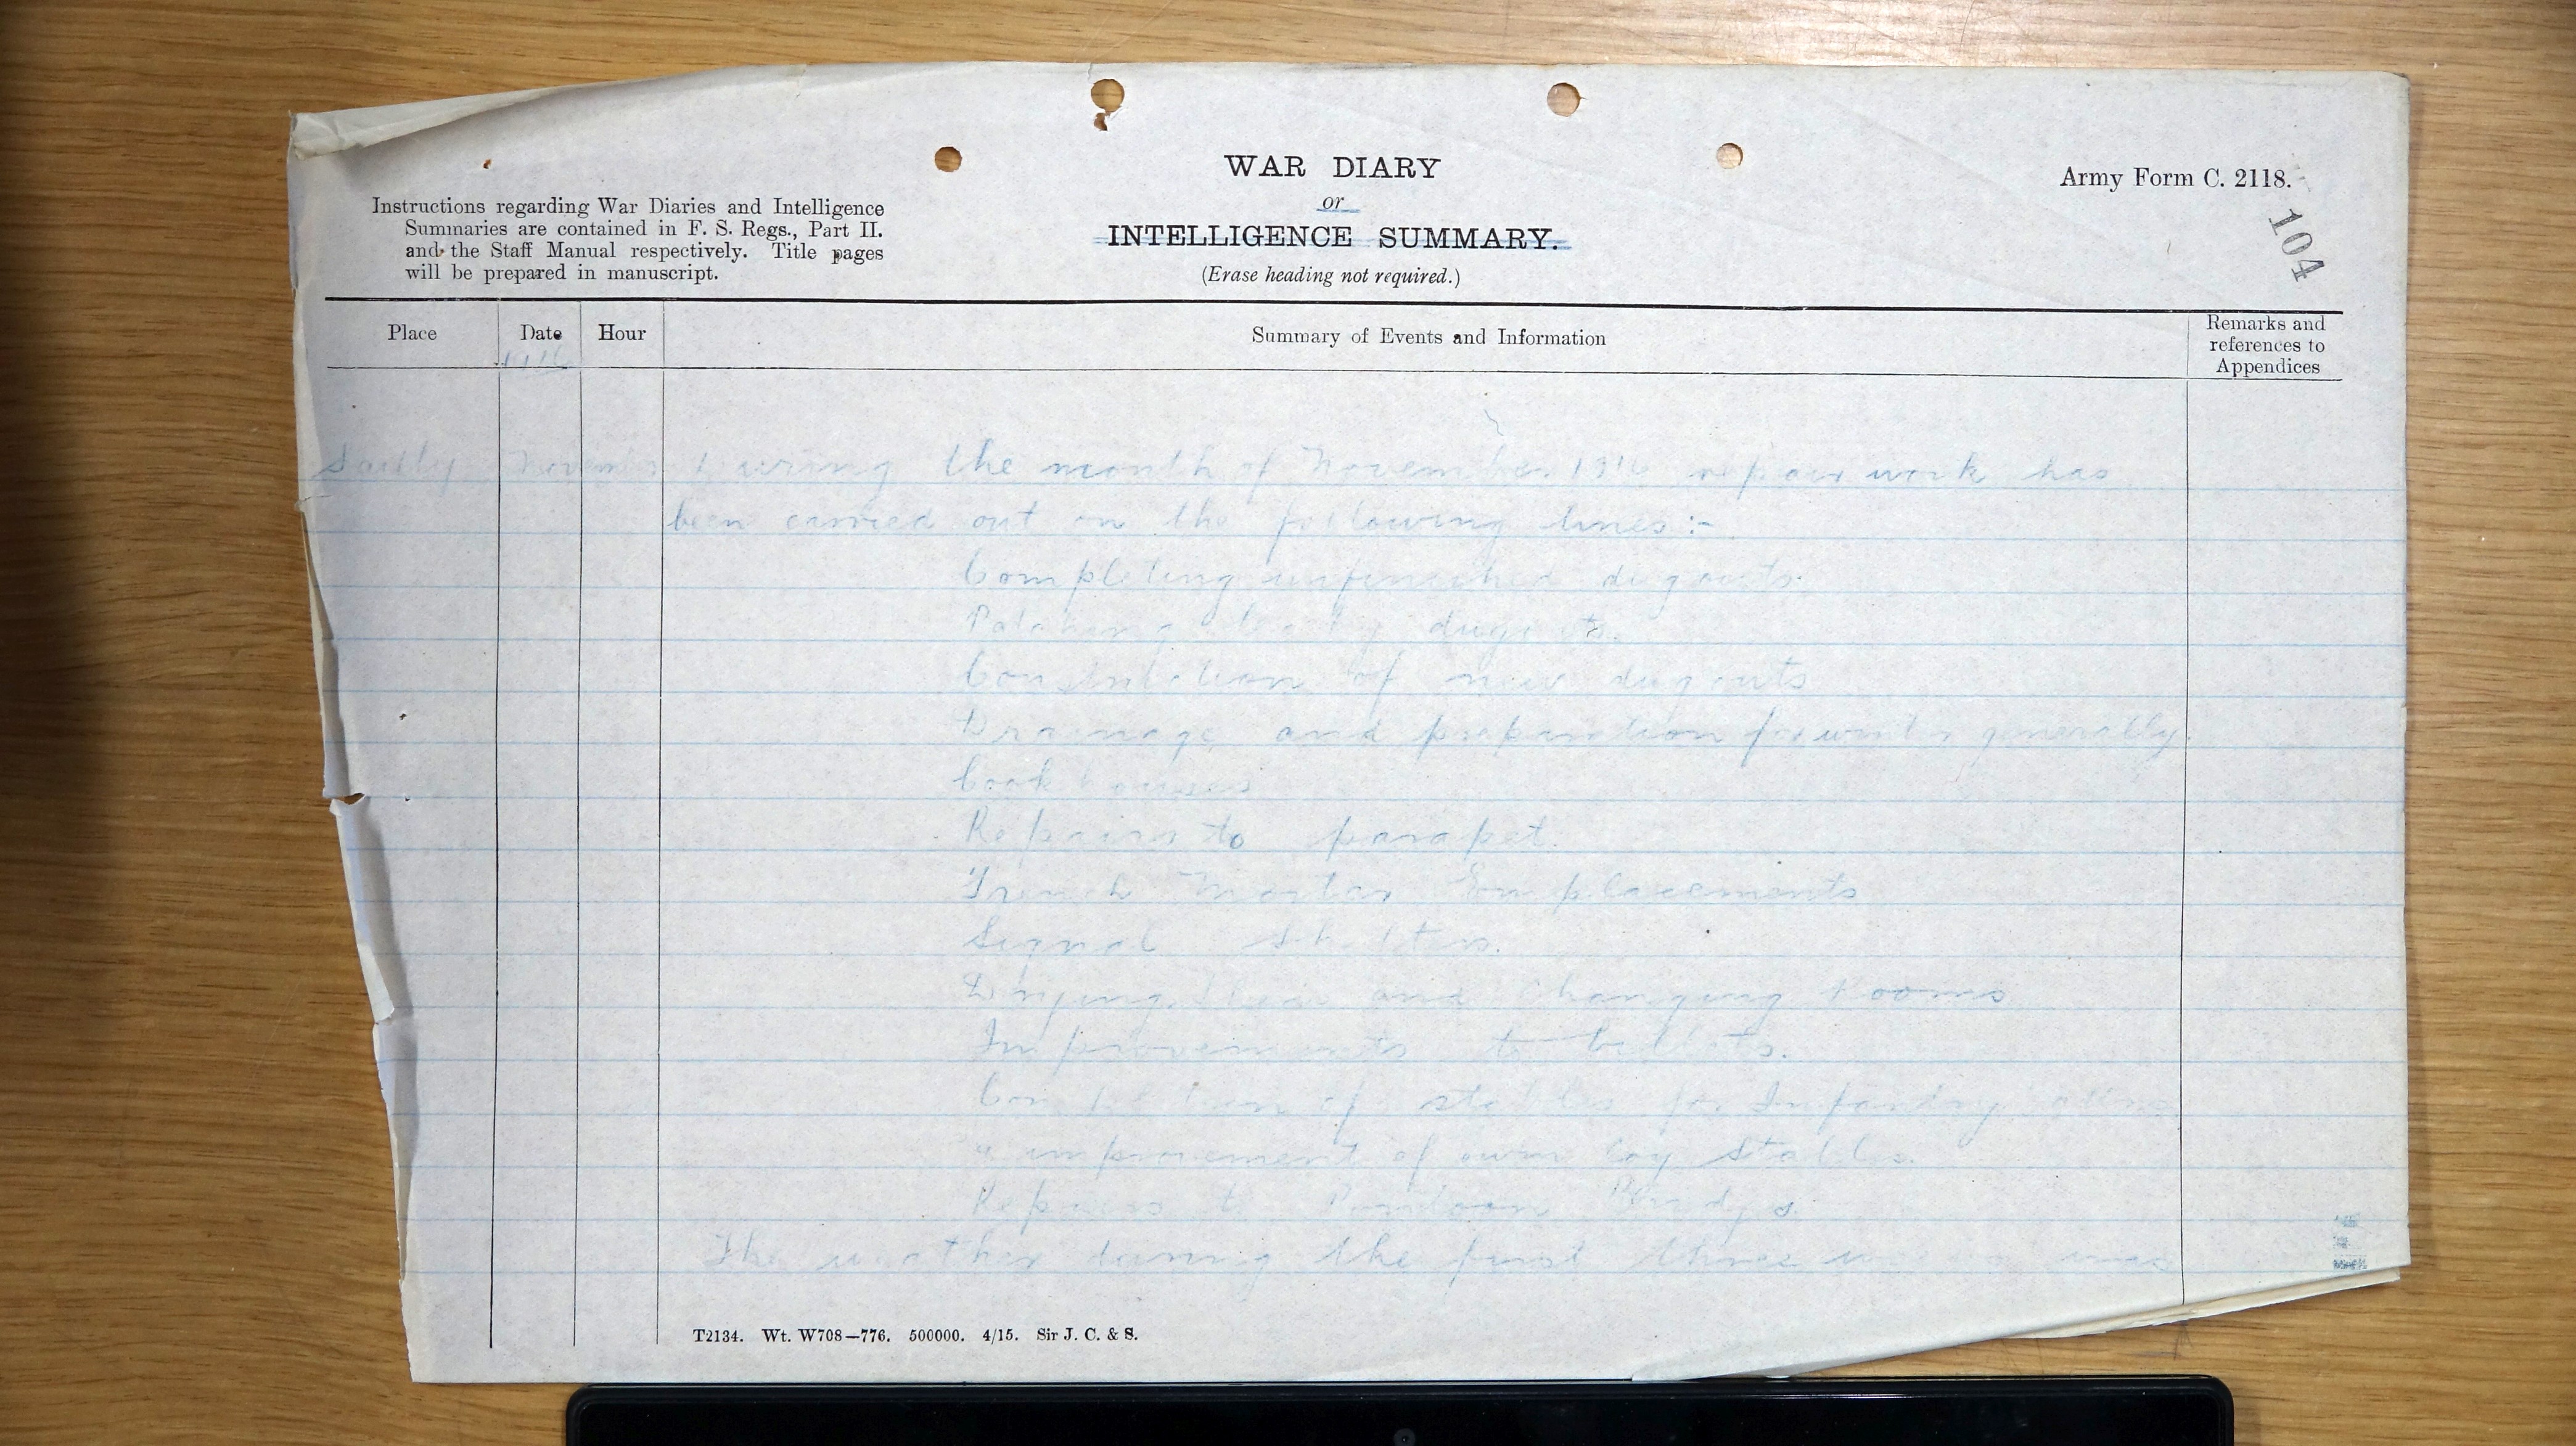 WAR DIARY
or
INTELLIGENCE SUMMARY.
(Erase heading not required.)
Army Form C. 2118.
104
Instructions regarding War Diaries and Intelligence
Summaries are contained in F. S. Regs., Part II.
and the Staff Manual respectively. Title pages
will be prepared in manuscript.
Place Date Hour Summary of Events and Information Remarks and references to Appendices
1916
November During the month of November 1916 repair work has
been carried out on the following lines:-
Completing unfinished dugouts.
Patching leaky dugouts.
Construction of new dugouts
Drainage and preparation for winter generally.
Cook houses
Repairs to parapet.
Trench Mortar Emplacements
Signal Shelters.
Drying and Changing Rooms
Improvements to billets.
Completion of stables for Infantry
& improvement of own Coy Stables.
Repairs to Pontoon Bridges.
The weather during the first three was
T2134. Wt. W708—776. 500000. 4/15. Sir J. C. & S.